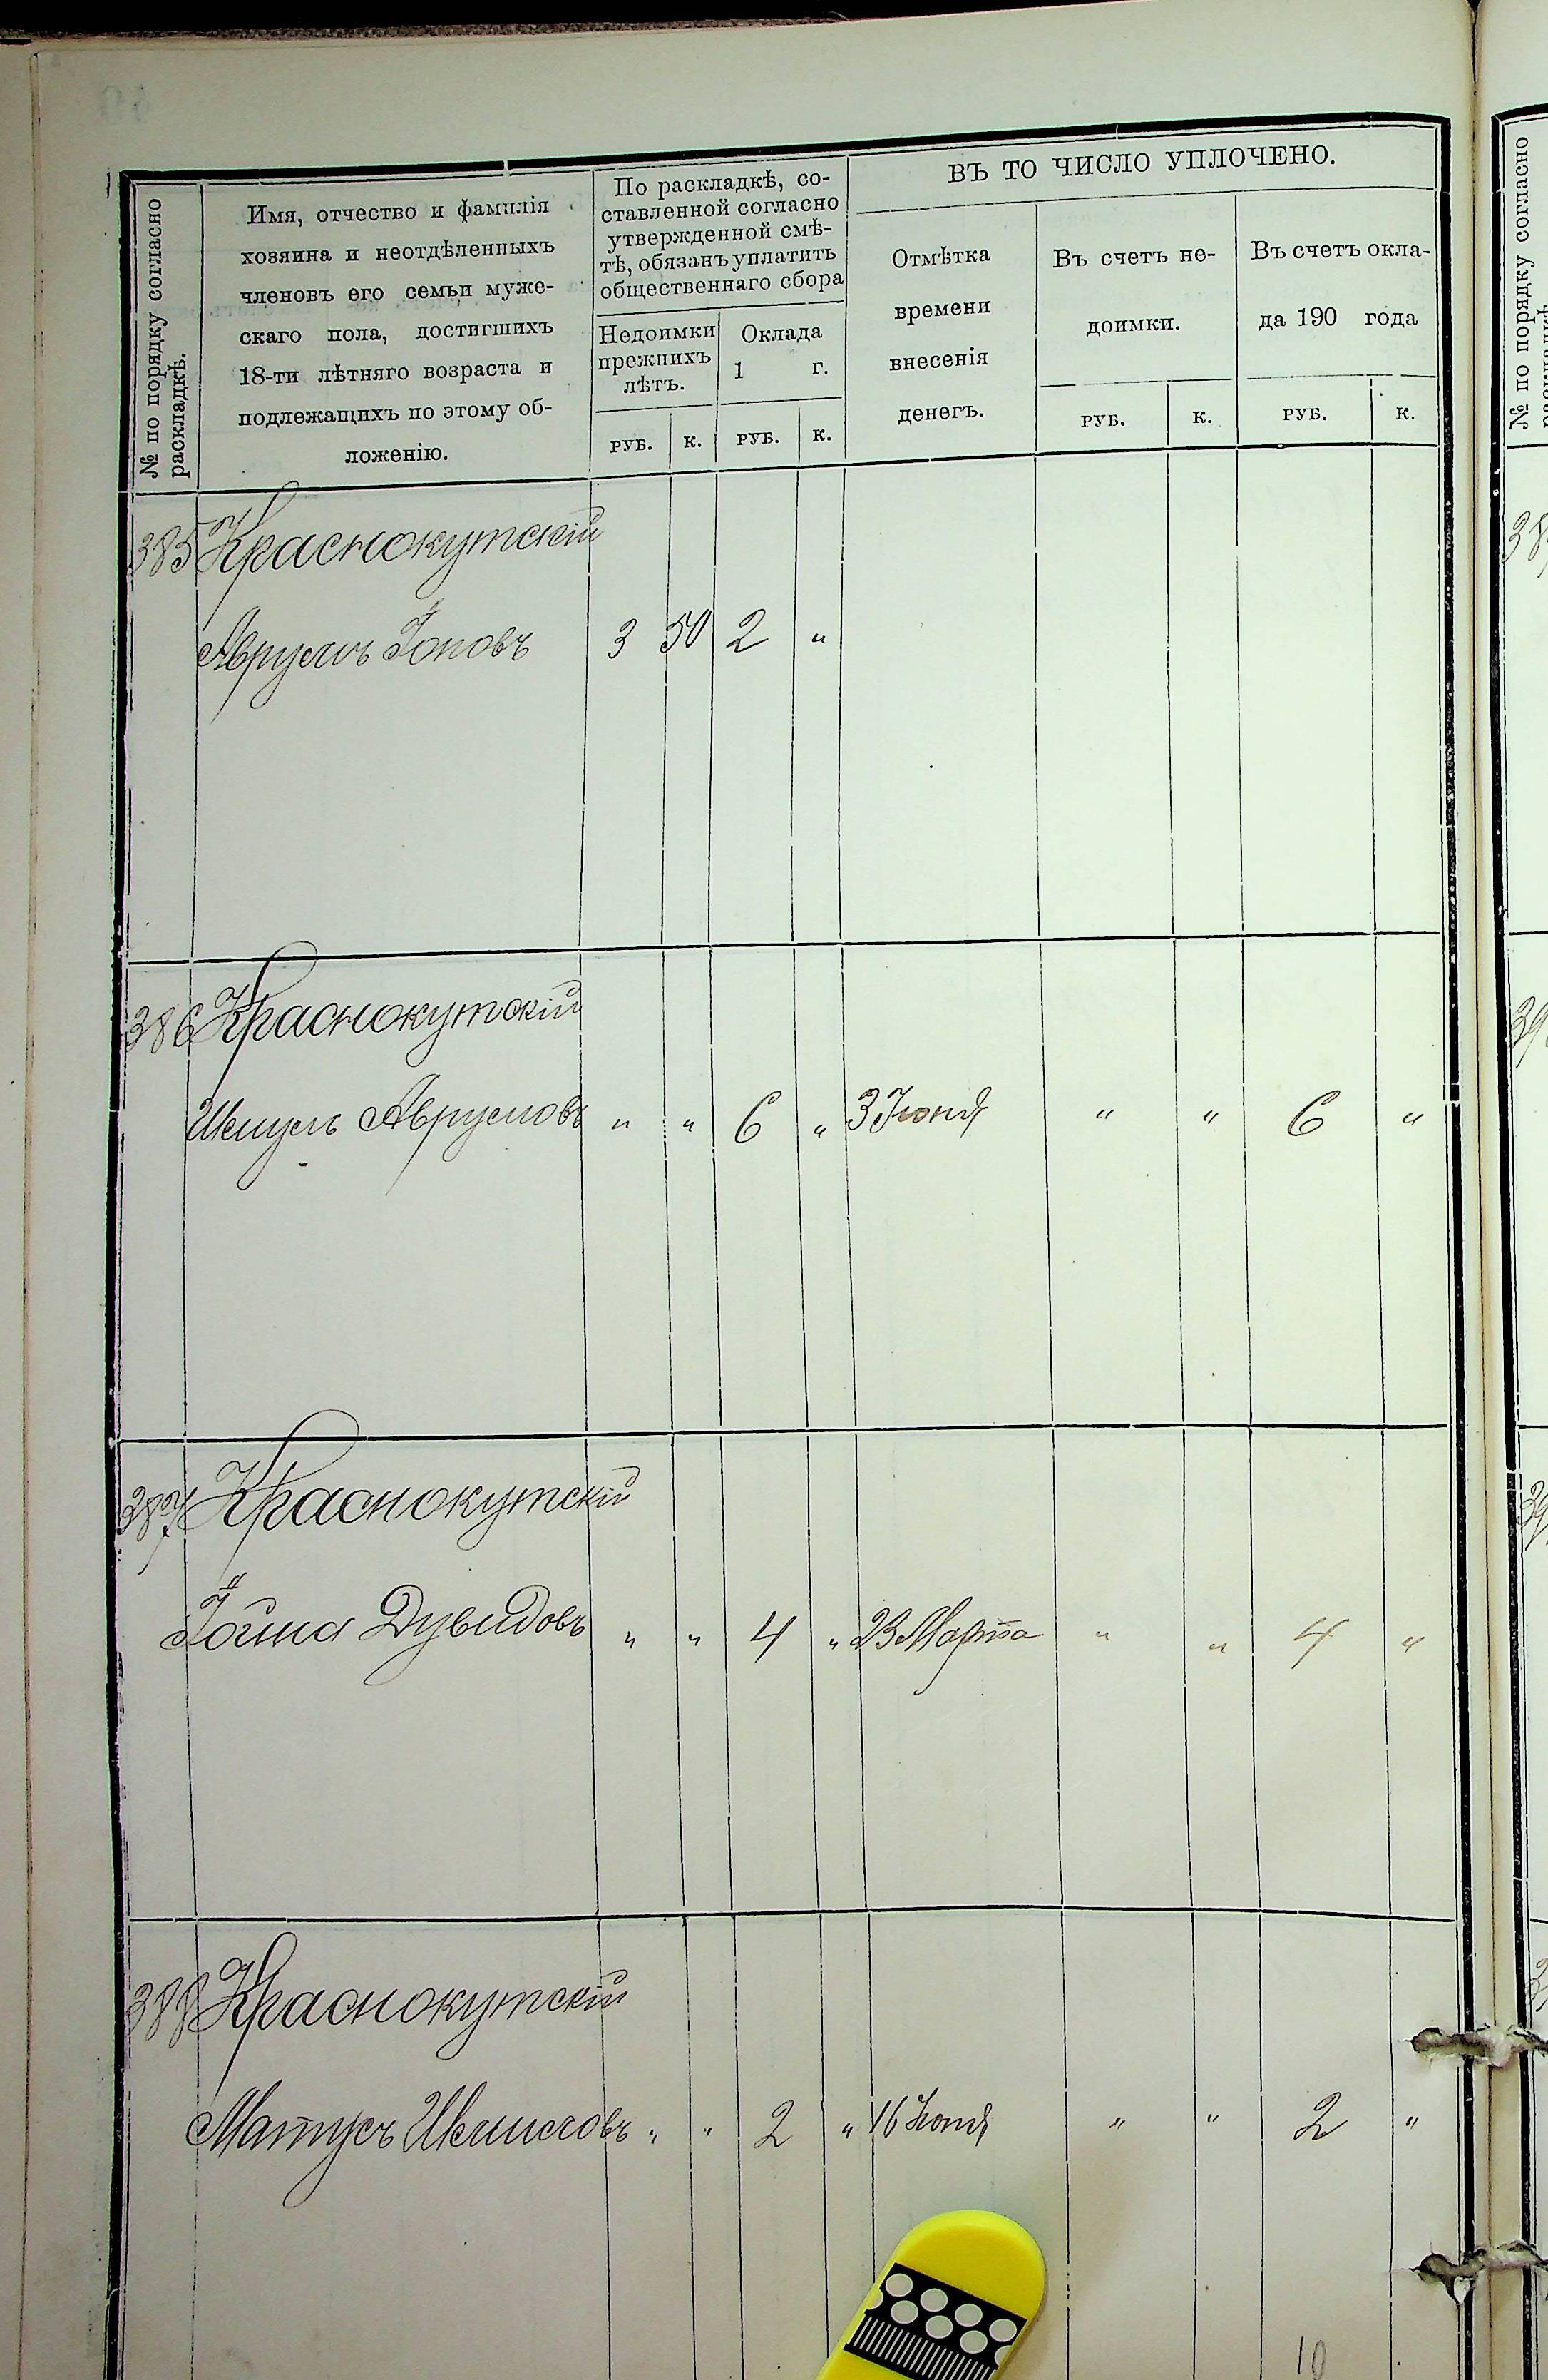 № по порядку согласно раскладкѣ.
Имя, отчество и фамилія
хозяина и неотдѣленныхъ
членовъ его семьи муже-
скаго пола, достигшихъ
18-ти лѣтняго возраста и
подлежащихъ по этому об-
ложенію.
По раскладкѣ, со-
ставленной согласно
утвержденной смѣ-
тѣ, обязанъ уплатить
общественнаго сбора
Недоимки
прежнихъ
лѣтъ.
Оклада
1 г.
РУБ. К. РУБ. К.
ВЪ ТО ЧИСЛО УПЛОЧЕНО.
Отмѣтка
времени
внесенія
денегъ.
Въ счетъ не-
доимки.
РУБ. К.
Въ счетъ окла-
да 190 года
РУБ. К.
385 Краснокутскій
Аврумъ Іоновъ 3 50 2 "
386 Краснокутскій
Шмуль Аврумовъ " " 6 " 3 Іюня " " 6 "
387 Краснокутскій
Іойна Дувидовъ " " 4 " 23 Марта " " 4 "
388 Краснокутскій
Матусъ " " 2 " 16 Іюня " " 2 "
10
№ по порядку согласно